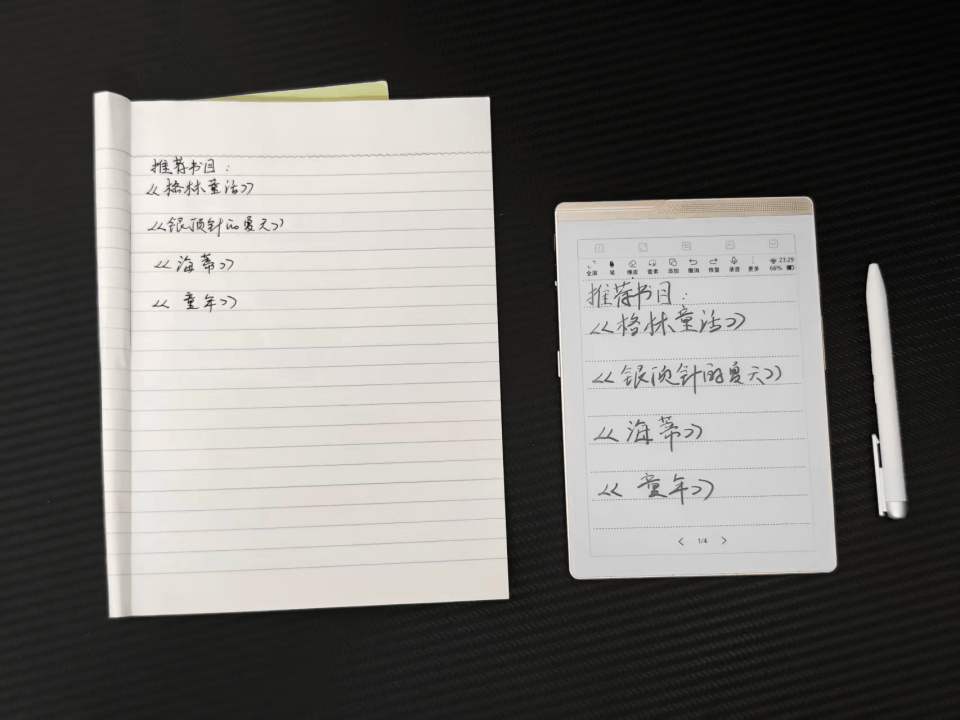 推荐书目：
《格林童话》
《银顶针的夏天》
《海蒂》
《童年》
23:29
全屏 笔 橡皮 套索 添加 撤消 恢复 录音 更多 66%
推荐书目：
《格林童话》
《银顶针的夏天》
《海蒂》
《童年》
< 1/4 >